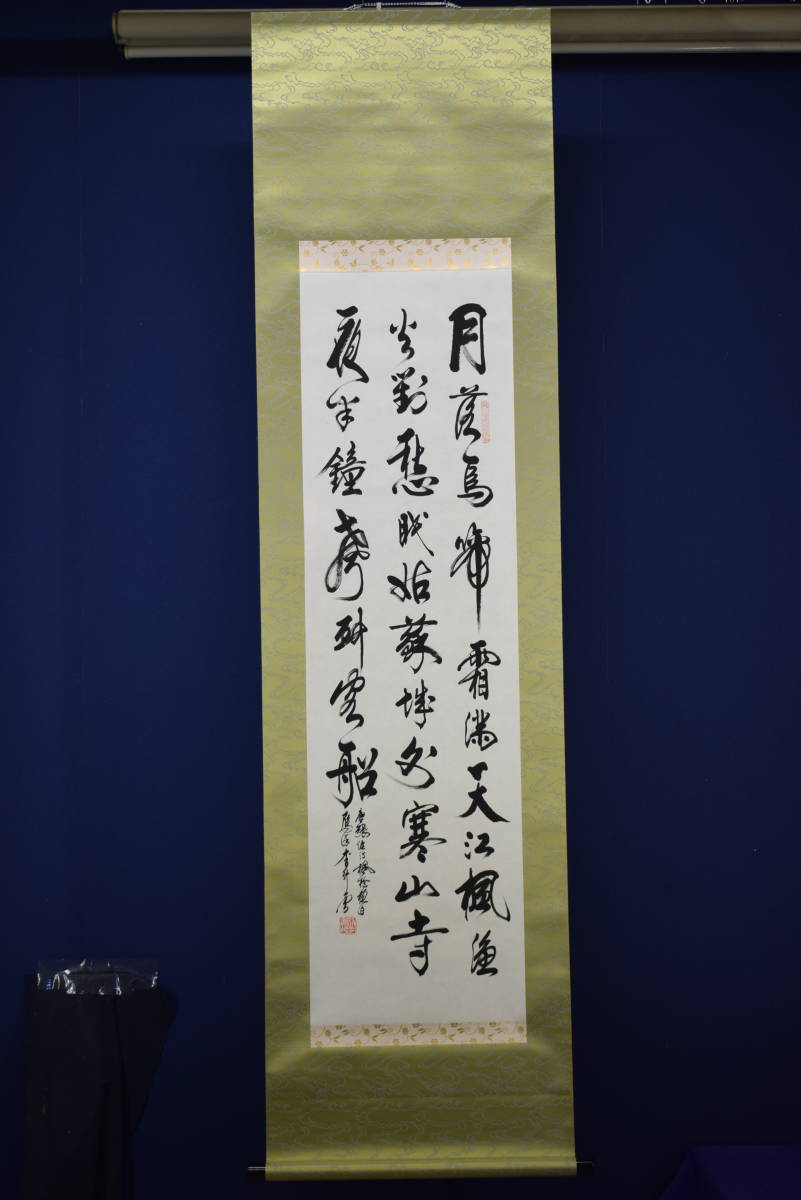 月落烏啼霜滿天江楓漁
火對愁眠姑蘇城外寒山寺
夜半鐘聲到客船
唐張继詩楓橋夜泊